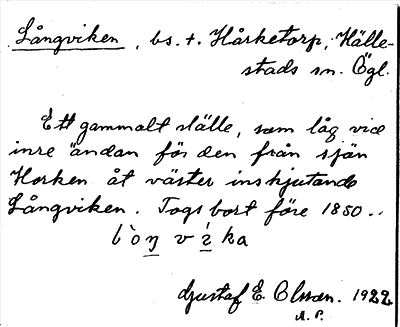 Långviken, bs. t. Hårketorp, Hälle-
stads sn. Ögl.
Ett gammalt ställe, som låg vid
inre ändan för den från sjön
Horken åt väster inskjutande
Långviken. Togs bort före 1850..
l`oŋ v ´i ka
Gustaf E. Olsson. 1922
A. P.